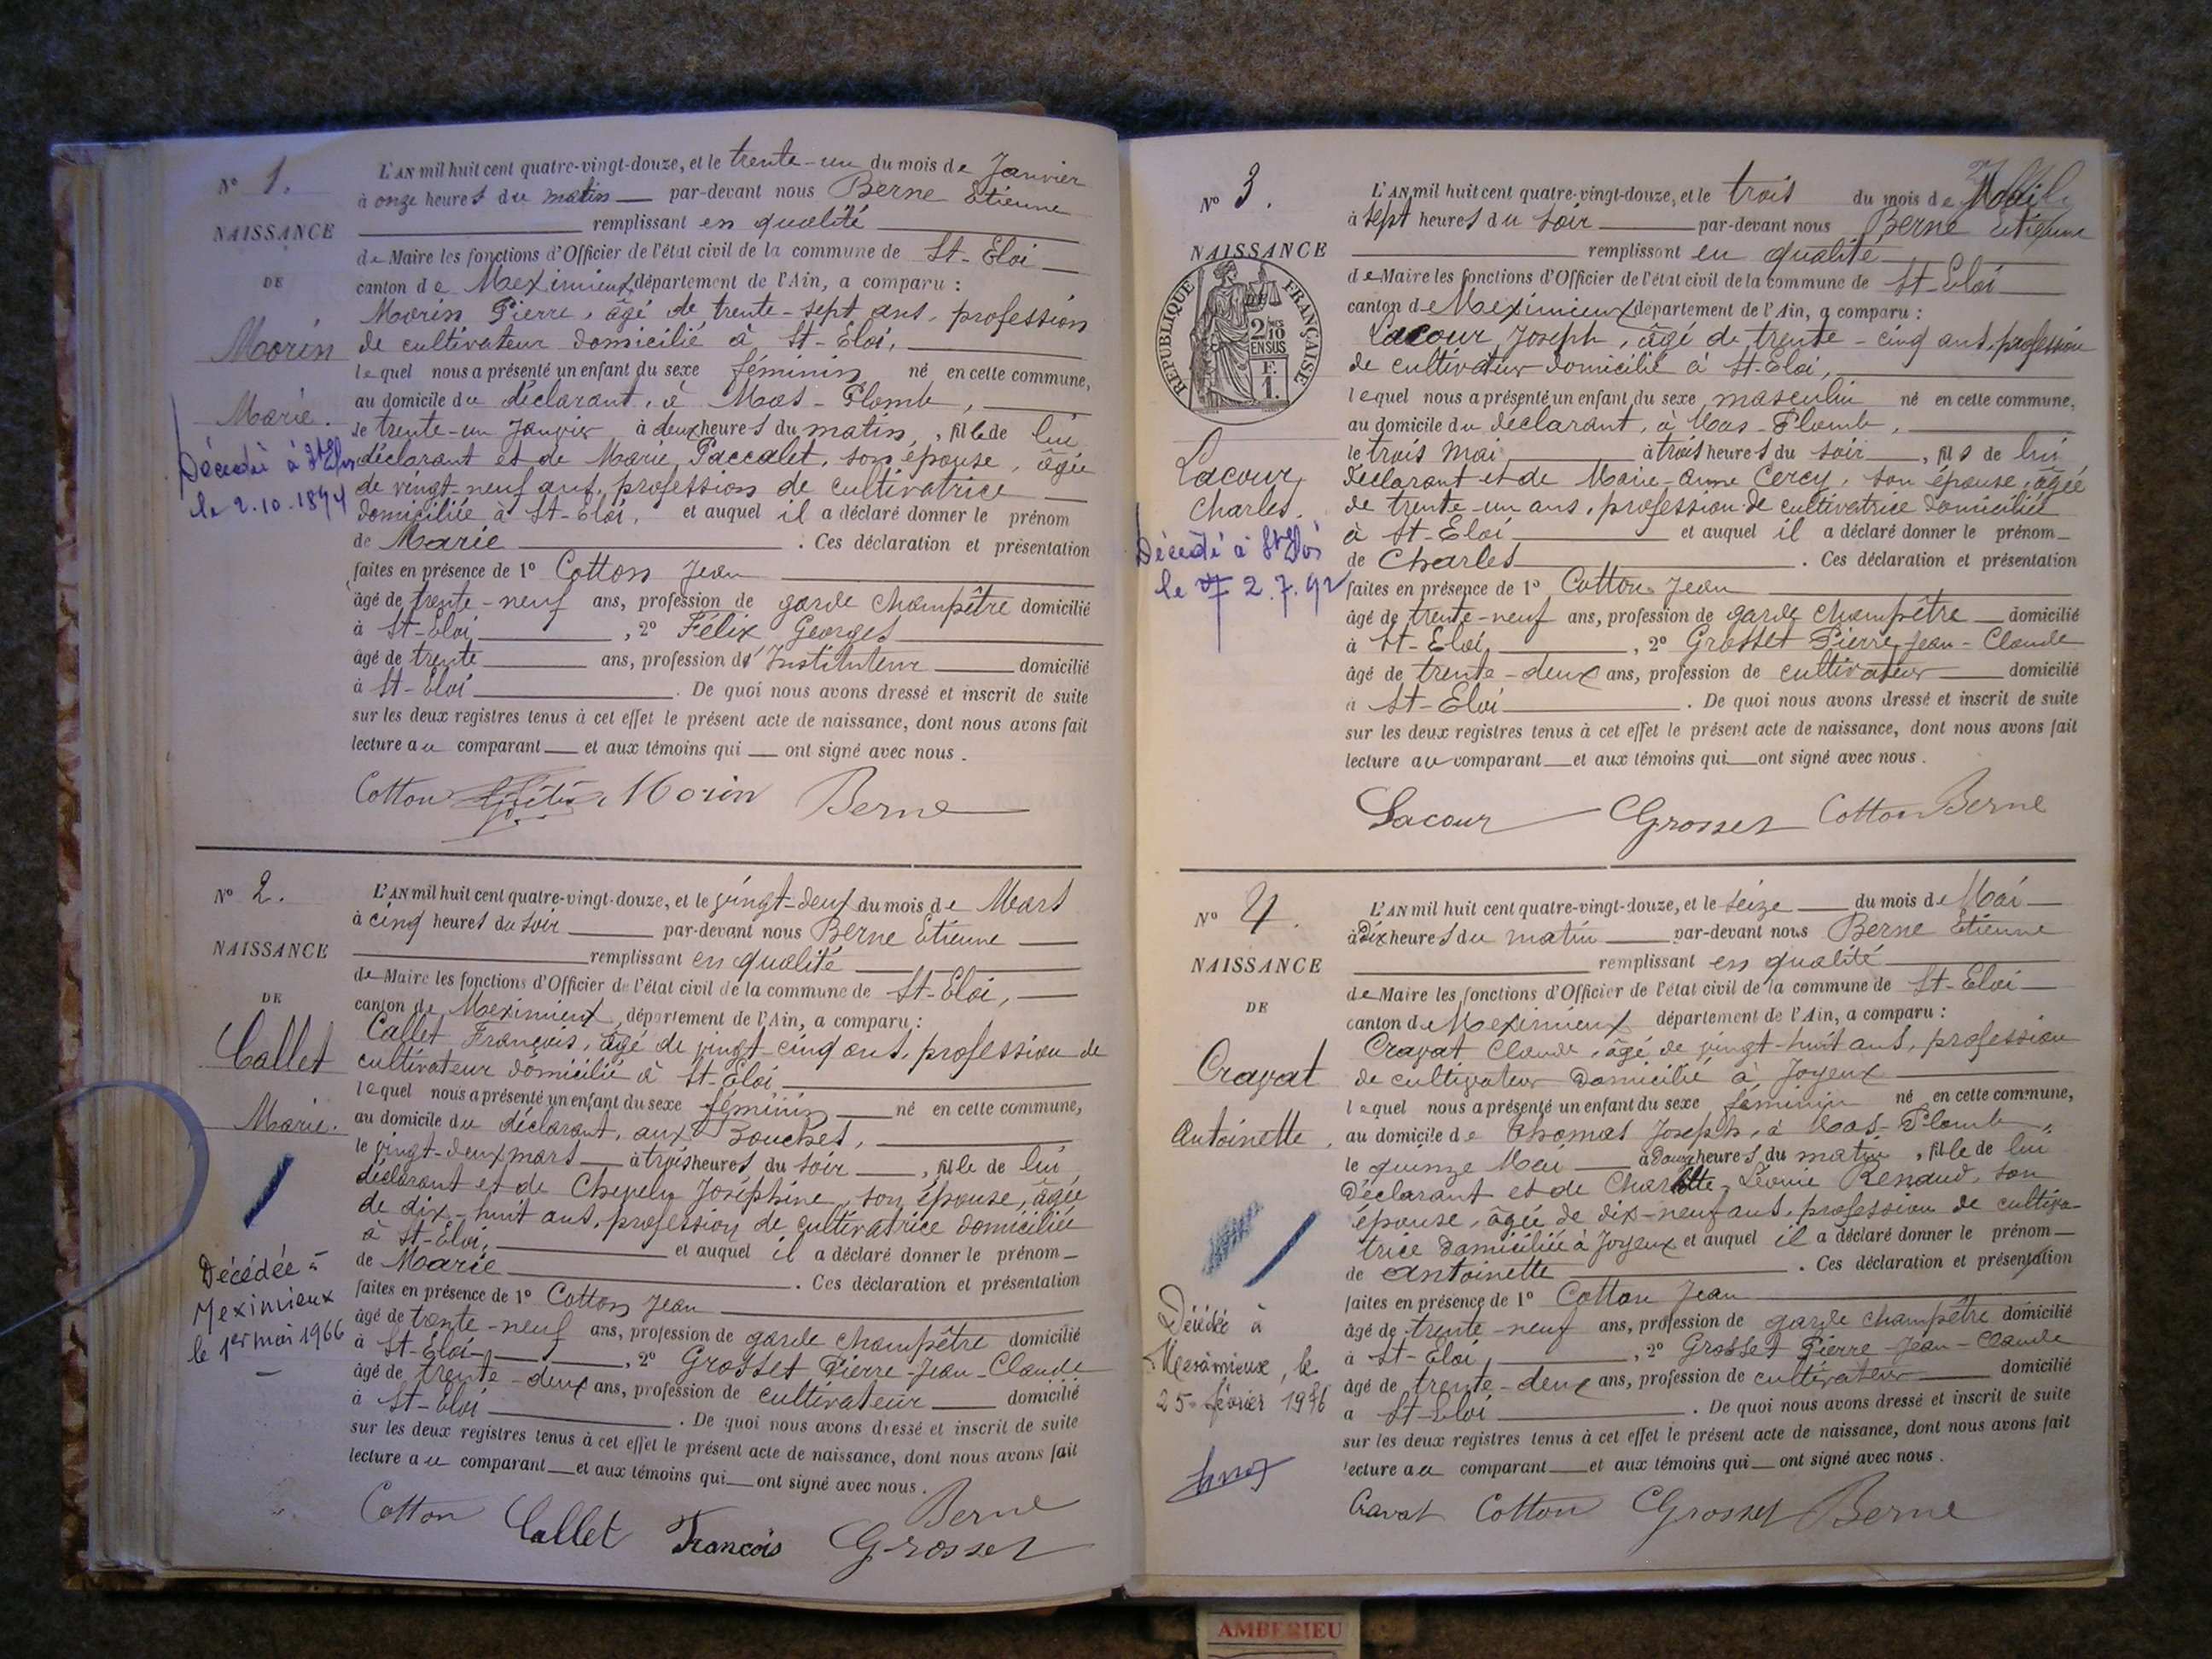 N° 1.
NAISSANCE
DE
Morin
Marie.
Décédé à St Eloi
le 2.10.1894
L'AN mil huit cent quatre-vingt-douze, et le trente-un du mois de Janvier
à onze heures du matin par-devant nous Berne Etienne
remplissant en qualité
de Maire les fonctions d'Officier de l'état civil de la commune de St-Eloi
canton de Meximieux département de l'Ain, a comparu :
Morin Pierre, âgé de trente-sept ans, profession
de cultivateur domicilié à St-Eloi,
lequel nous a présenté un enfant du sexe féminin né en cette commune,
au domicile du déclarant, à Mas-Plomb,
le trente-un Janvier à deux heures du matin, fille de lui
déclarant et de Marie Paccalet, son épouse, âgée
de vingt-neuf ans, profession de cultivatrice
domiciliée à St-Eloi, et auquel il a déclaré donner le prénom
de Marie . Ces déclaration et présentation
faites en présence de 1° Cotton Jean
âgé de trente-neuf ans, profession de garde champêtre domicilié
à St-Eloi , 2° Félix Georges
âgé de trente ans, profession d'Instituteur domicilié
à St-Eloi . De quoi nous avons dressé et inscrit de suite
sur les deux registres tenus à cet effet le présent acte de naissance, dont nous avons fait
lecture au comparant et aux témoins qui ont signé avec nous.
Cotton Morin Berne
N° 2.
NAISSANCE
DE
Callet
Marie.
Décédée à
Meximieux
le 1er mai 1966
L'AN mil huit cent quatre-vingt-douze, et le vingt-deux du mois de Mars
à cinq heures du soir par-devant nous Berne Etienne
remplissant en qualité
de Maire les fonctions d'Officier de l'état civil de la commune de St-Eloi,
canton de Meximieux, département de l'Ain, a comparu :
Callet François, âgé de vingt-cinq ans, profession de
cultivateur domicilié à St-Eloi
lequel nous a présenté un enfant du sexe féminin né en cette commune,
au domicile du déclarant, aux Bouches,
le vingt-deux mars à trois heures du soir , fille de lui
déclarant et de Chevely Joséphine, son épouse, âgée
de dix-huit ans, profession de cultivatrice domiciliée
à St-Eloi, et auquel il a déclaré donner le prénom
de Marie . Ces déclaration et présentation
faites en présence de 1° Cotton Jean
âgé de trente-neuf ans, profession de garde champêtre domicilié
à St-Eloi , 2° Grosset Pierre-Jean-Claude
âgé de trente-deux ans, profession de cultivateur domicilié
à St-Eloi . De quoi nous avons dressé et inscrit de suite
sur les deux registres tenus à cet effet le présent acte de naissance, dont nous avons fait
lecture au comparant et aux témoins qui ont signé avec nous.
Cotton Callet François Grosset Berne
N° 3.
NAISSANCE
DE
REPUBLIQUE FRANÇAISE
2/10 EN SUS
F. 1.
Lacour
Charles.
Décédé à St Eloi
le 2.7.92
L'AN mil huit cent quatre-vingt-douze, et le trois du mois de Mai
à sept heures du soir par-devant nous Berne Etienne
remplissant en qualité
de Maire les fonctions d'Officier de l'état civil de la commune de St-Eloi
canton de Meximieux département de l'Ain, a comparu :
Lacour Joseph, âgé de trente-cinq ans, profession
de cultivateur domicilié à St-Eloi,
lequel nous a présenté un enfant du sexe masculin né en cette commune,
au domicile du déclarant, à Mas-Plomb,
le trois Mai à trois heures du soir , fils de lui
déclarant et de Marie-Anne Cercy, son épouse, âgée
de trente-un ans, profession de cultivatrice domiciliée
à St-Eloi et auquel il a déclaré donner le prénom
de Charles . Ces déclaration et présentation
faites en présence de 1° Cotton Jean
âgé de trente-neuf ans, profession de garde champêtre domicilié
à St-Eloi , 2° Grosset Pierre Jean-Claude
âgé de trente-deux ans, profession de cultivateur domicilié
à St-Eloi . De quoi nous avons dressé et inscrit de suite
sur les deux registres tenus à cet effet le présent acte de naissance, dont nous avons fait
lecture au comparant et aux témoins qui ont signé avec nous.
Lacour Grosset Cotton Berne
N° 4.
NAISSANCE
DE
Cravat
Antoinette.
Décédée à
Meximieux, le
25 février 1976
L'AN mil huit cent quatre-vingt-douze, et le seize du mois de Mai
à Dix heures du matin par-devant nous Berne Etienne
remplissant en qualité
de Maire les fonctions d'Officier de l'état civil de la commune de St-Eloi
canton de Meximieux département de l'Ain, a comparu :
Cravat Claude, âgé de vingt-huit ans, profession
de cultivateur domicilié à Joyeux
lequel nous a présenté un enfant du sexe féminin né en cette commune,
au domicile de Thomas Joseph, à Mas-Plomb,
le quinze Mai à douze heures du matin , fille de lui
déclarant et de Charlotte Léonie Renaud, son
épouse, âgée de dix-neuf ans, profession de cultiva-
trice domiciliée à Joyeux et auquel il a déclaré donner le prénom
de Antoinette . Ces déclaration et présentation
faites en présence de 1° Cotton Jean
âgé de trente-neuf ans, profession de garde champêtre domicilié
à St-Eloi , 2° Grosset Pierre-Jean-Claude
âgé de trente-deux ans, profession de cultivateur domicilié
à St-Eloi . De quoi nous avons dressé et inscrit de suite
sur les deux registres tenus à cet effet le présent acte de naissance, dont nous avons fait
lecture au comparant et aux témoins qui ont signé avec nous.
Cravat Cotton Grosset Berne
AMBERIEU